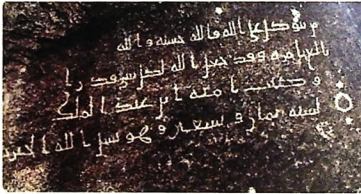 من يتوكل على الله فالله حسبه والله
بالغ امره وقد جعل الله لكل شي قدرا
وكتب امية ابن عبد الملك
لسنة ثمان وتسعين وهو يسل الله الجنة